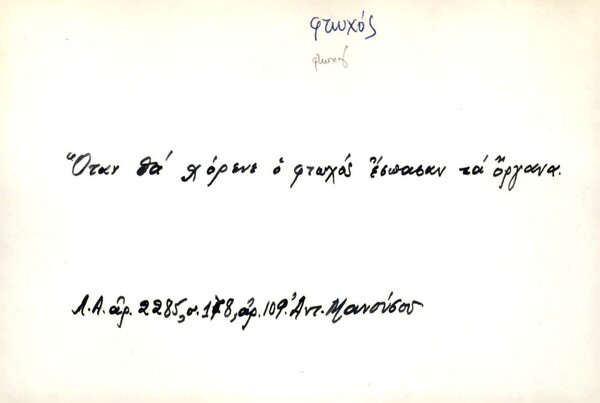 φτωχός
φτωχός
Ὅταν θά χόρευε ὁ φτωχός ἔσπασαν τά ὄργανα.
Λ.Α. ἀρ. 2285, σ. 178, ἀρ. 109. Ἀντ. Μανούσου